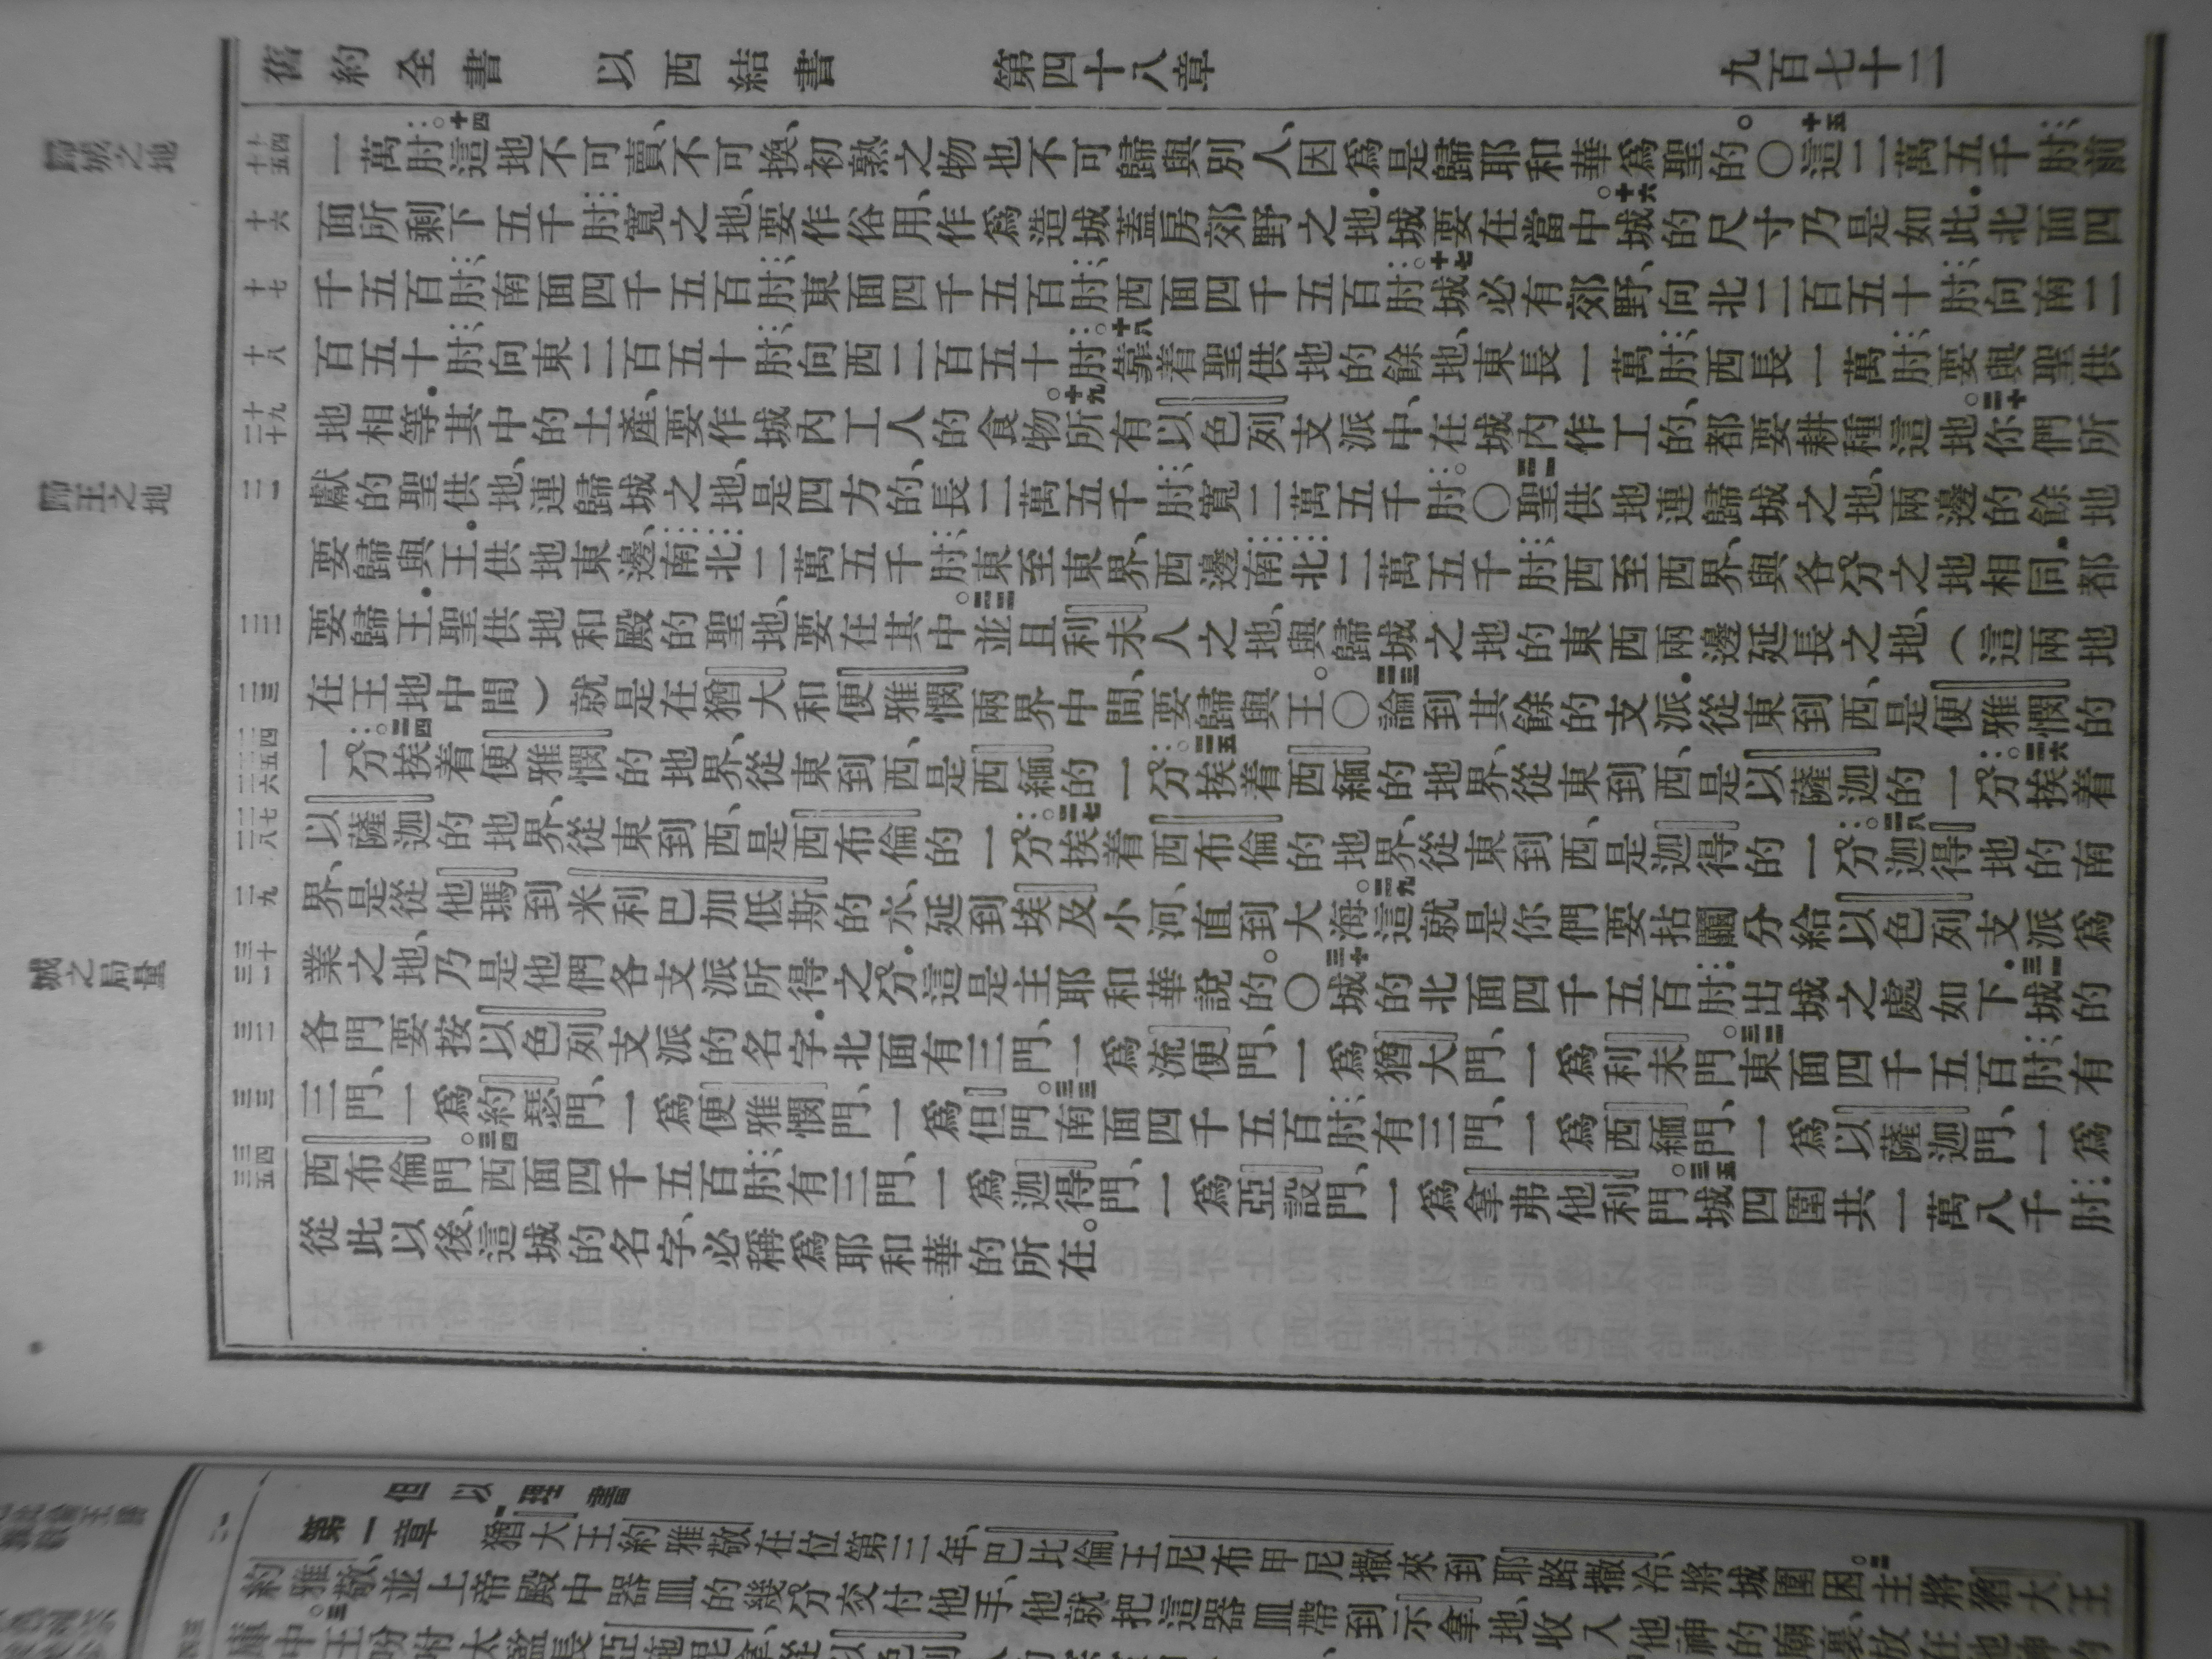 舊約全書 以西結書 第四十八章 九百七十二
歸城之地
歸王之地
城之局量
一萬肘。十四這地不可賣、不可換、初熟之物也不可歸與別人、因爲是歸耶和華爲聖的。〇十五這二萬五千肘前
面所剩下五千肘寬之地、要作俗用、作爲造城蓋房郊野之地．城要在當中。十六城的尺寸乃是如此．北面四
千五百肘、南面四千五百肘、東面四千五百肘、西面四千五百肘。十七城必有郊野、向北二百五十肘、向南二
百五十肘、向東二百五十肘、向西二百五十肘。十八靠着聖供地的餘地、東長一萬肘、西長一萬肘、要與聖供
地相等．其中的土產、要作城內工人的食物。十九所有以色列支派中、在城內作工的、都要耕種這地。二十你們所
獻的聖供地、連歸城之地、是四方的、長二萬五千肘、寬二萬五千肘。〇二一聖供地連歸城之地、兩邊的餘地
要歸與王．供地東邊、南北二萬五千肘、東至東界、西邊南北二萬五千肘、西至西界、與各分之地相同．都
要歸王．聖供地和殿的聖地、要在其中。二二並且利未人之地、與歸城之地的東西兩邊延長之地、（這兩地
在王地中間）就是在猶大和便雅憫兩界中間、要歸與王。〇二三論到其餘的支派．從東到西、是便雅憫的
一分。二四挨着便雅憫的地界、從東到西、是西緬的一分。二五挨着西緬的地界、從東到西、是以薩迦的一分。二六挨着
以薩迦的地界、從東到西、是西布倫的一分。二七挨着西布倫的地界、從東到西、是迦得的一分。二八迦得地的南
界、是從他瑪到米利巴加低斯的水、延到埃及小河、直到大海。二九這就是你們要拈鬮分給以色列支派爲
業之地、乃是他們各支派所得之分．這是主耶和華說的。〇三十城的北面四千五百肘．出城之處如下．三一城的
各門要按以色列支派的名字．北面有三門、一爲流便門、一爲猶大門、一爲利未門。三二東面四千五百肘．有
三門、一爲約瑟門、一爲便雅憫門、一爲但門。三三南面四千五百肘．有三門、一爲西緬門、一爲以薩迦門、一爲
西布倫門。三四西面四千五百肘．有三門、一爲迦得門、一爲亞設門、一爲拿弗他利門。三五城四圍共一萬八千肘．
從此以後、這城的名字、必稱爲耶和華的所在。
但以理書
第一章 一猶大王約雅敬在位第三年、巴比倫王尼布甲尼撒來到耶路撒冷、將城圍困。二主將猶大王
約雅敬、並上帝殿中器皿的幾分交付他手、他就把這器皿帶到示拿地、收入他神的廟裏、放在他神的
庫中。三王吩咐太監長亞施毘拿、從以色列人